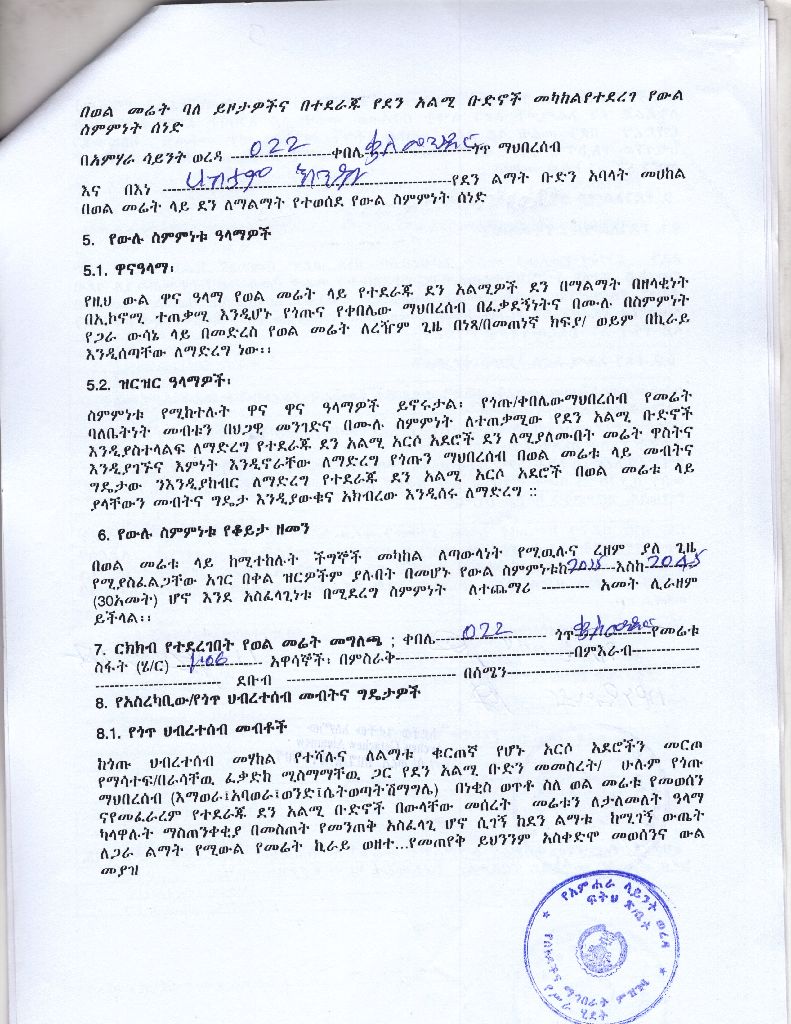 በወል መሬት ባለ ይዞታዎችና በተደራጁ የደን አልሚ ቡድኖች መካከልየተደረገ የውል
ስምምነት ሰነድ
በአምሃራ ሳይንት ወረዳ ---------------022-----------ቀበሌ ---------------ጎጥ ማህበረሰብ
እና በእነ ----------------------------------------------የደን ልማት ቡድን አባላት መሀከል
በወል መሬት ላይ ደን ለማልማት የተወሰደ የውል ስምምነት ሰነድ
5. የውሉ ስምምነቱ ዓላማዎች
5.1. ዋናዓላማ፡
የዚህ ውል ዋና ዓላማ የወል መሬት ላይ የተደራጁ ደን አልሚዎች ደን በማልማት በዘላቂነት
በኢኮኖሚ ተጠቃሚ እንዲሆኑ የጎጡና የቀበሌው ማህበረሰብ በፈቃደኝነትና በሙሉ በስምምነት
የጋራ ውሳኔ ላይ በመድረስ የወል መሬት ለረዥም ጊዜ በነጻ/በመጠነኛ ክፍያ/ ወይም በኪራይ
እንዲሰጣቸው ለማድረግ ነው፡፡
5.2. ዝርዝር ዓላማዎች፡
ስምምነቱ የሚከተሉት ዋና ዋና ዓላማዎች ይኖሩታል፡ የጎጡ/ቀበሌውማህበረሰብ የመሬት
ባለቤትነት መብቱን በህጋዊ መንገድና በሙሉ ስምምነት ለተጠቃሚው የደን አልሚ ቡድኖች
እንዲያስተላልፍ ለማድረግ የተደራጁ ደን አልሚ አርሶ አደሮች ደን ለሚያለሙበት መሬት ዋስትና
እንዲያገኙና እምነት እንዲኖራቸው ለማድረግ የጎጡን ማህበረሰብ በወል መሬቱ ላይ መብትና
ግዴታው ንእንዲያከብር ለማድረግ የተደራጁ ደን አልሚ አርሶ አደሮች በወል መሬቱ ላይ
ያላቸውን መብትና ግዴታ እንዲያውቁና አክብረው እንዲሰሩ ለማድረግ ::
6. የውሉ ስምምነቱ የቆይታ ዘመን
በወል መሬቱ ላይ ከሚተከሉት ችግኞች መካከል ለጣውላነት የሚዉሉና ረዘም ያለ ጊዜ
የሚያስፈልጋቸው አገር በቀል ዝርዎችም ያሉበት በመሆኑ የውል ስምምነቱከ2015---እስከ-2045
(30አመት) ሆኖ እንደ አስፈላጊነቱ በሚደረግ ስምምነት ለተጨማሪ ---------- አመት ሊራዘም
ይችላል፡፡
7. ርክክብ የተደረገበት የወል መሬት መግለጫ ; ቀበሌ-----022------- ጎጥ ------------የመሬቱ
ስፋት (ሄ/ር) ------------- አዋሳኞች፡ በምስራቅ-----------------------------በምእራብ-----------
-------------------- ደቡብ --------------------------- በሰሜን-----------------------------------
8. የአስረካቢው/የጎጥ ህብረተሰብ መብትና ግዴታዎች
8.1. የጎጥ ህብረተሰብ መብቶች
ከጎጡ ህብረተሰብ መሃከል የተሻሉና ለልማቱ ቁርጠኛ የሆኑ አርሶ አደሮችን መርጦ
የማሳተፍ/በራሳቸዉ ፈቃድከ ሚስማማቸዉ ጋር የደን አልሚ ቡድን መመስረት/ ሁሉም የጎጡ
ማህበረሰብ (እማወራ፤አባወራ፤ወንድ፤ሴትወጣትሽማግሌ) በነቂስ ወጥቶ ስለ ወል መሬቱ የመወሰን
ናየመፈራረም የተደራጁ ደን አልሚ ቡድኖች በውላቸው መሰረት መሬቱን ለታለመለት ዓላማ
ካላዋሉት ማስጠንቀቂያ በመስጠት የመንጠቅ አስፈላጊ ሆኖ ሲገኝ ከደን ልማቱ ከሚገኝ ውጤት
ለጋራ ልማት የሚውል የመሬት ኪራይ ወዘተ...የመጠየቅ ይህንንም አስቀድሞ መወሰንና ውል
መያዝ
የአምሐራ ሳይንት ወረዳ
ፍትህ ጽ/ቤት